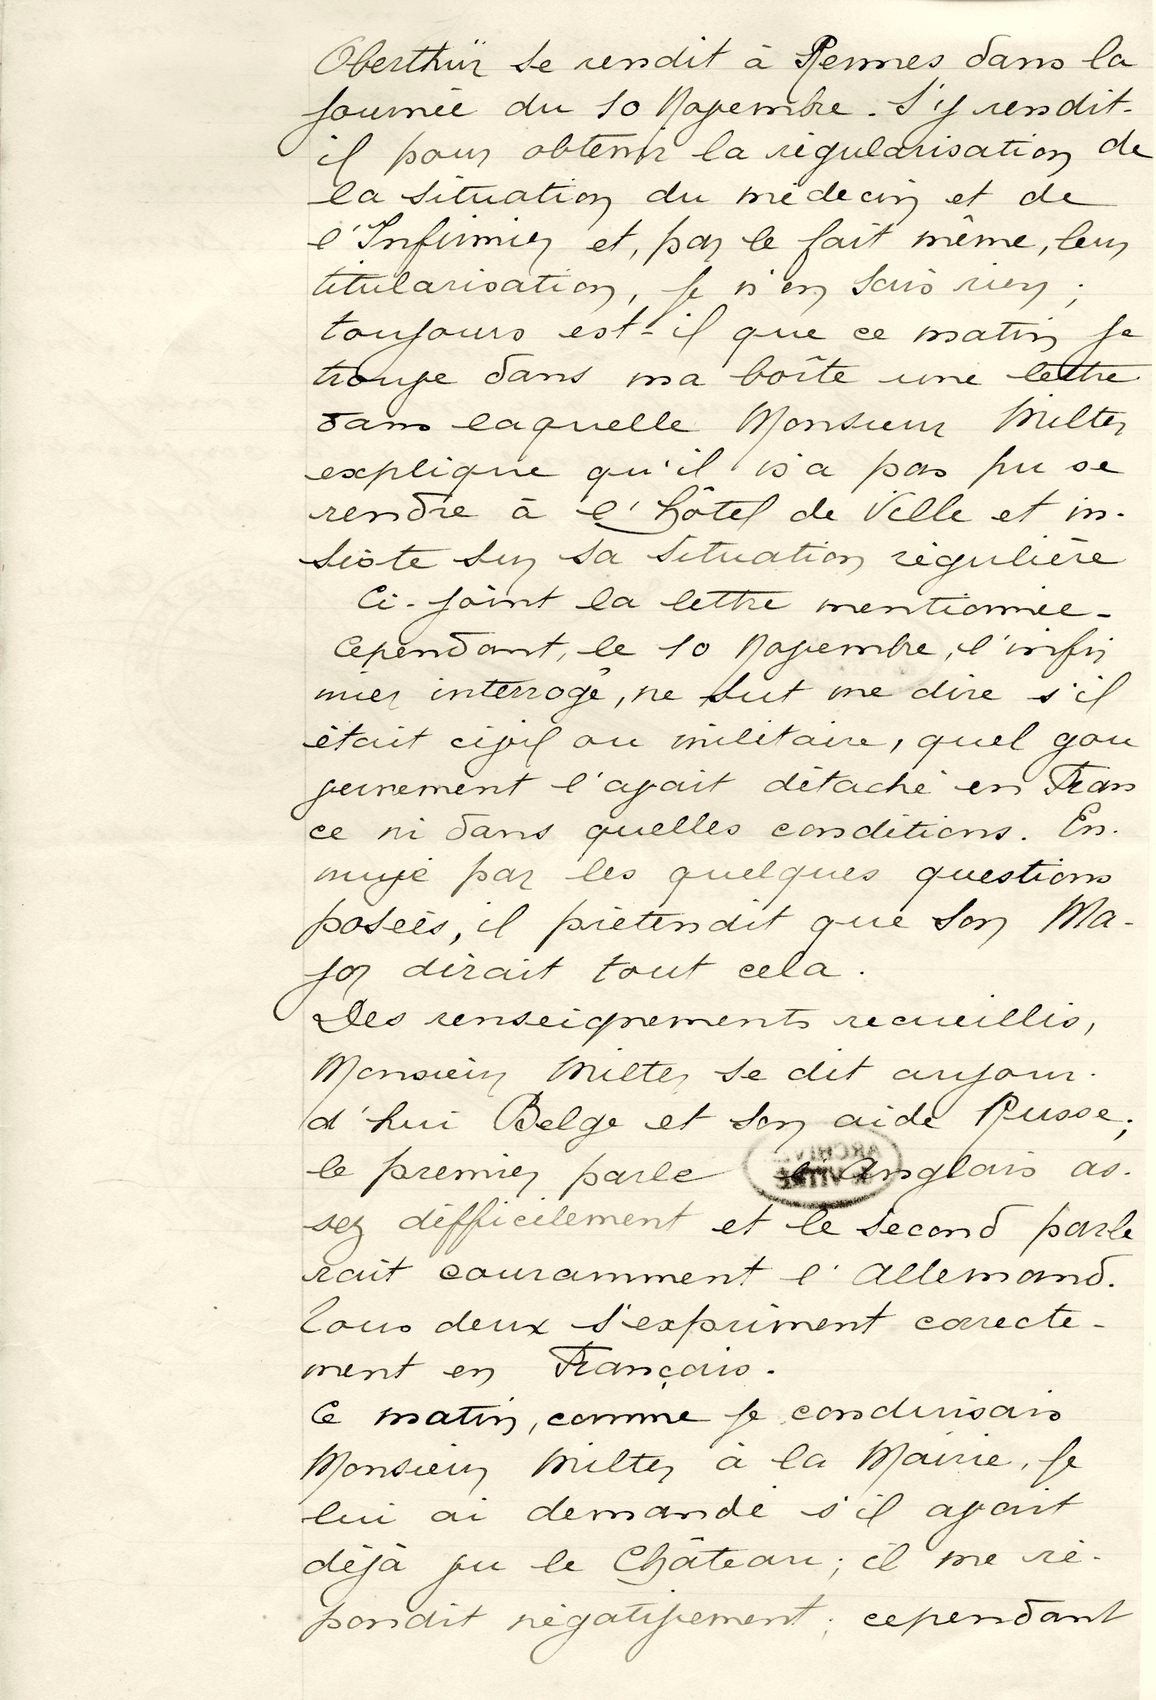 Oberthür se rendit à Rennes dans la
journée du 10 Novembre. S'y rendit-
il pour obtenir la régularisation de
la situation du médecin et de
l'Infirmier et, par le fait même, leur
titularisation, je n'en sais rien ;
toujours est-il que ce matin je
trouve dans ma boîte une lettre
dans laquelle Monsieur Milter
explique qu'il n'a pas pu se
rendre à l'hôtel de Ville et in-
siste sur sa situation régulière
Ci-joint la lettre mentionnée -
Cependant, le 10 Novembre, l'infir
mier interrogé, ne sut me dire s'il
était civil ou militaire, quel gou
vernement l'avait détaché en Fran
ce ni dans quelles conditions. En-
nuyé par les quelques questions
posées, il prétendit que son Ma-
jor dirait tout cela.
Des renseignements recueillis,
Monsieur Milter se dit aujour-
d'hui Belge et son aide Russe;
le premier parle Anglais as-
sez difficilement et le second parle
rait couramment l'Allemand.
Tous deux s'expriment correcte-
ment en Français.
Ce matin, comme je conduisais
Monsieur Milter à la Mairie, je
lui ai demandé s'il avait
déjà vu le Château; il me ré-
pondit négativement; cependant